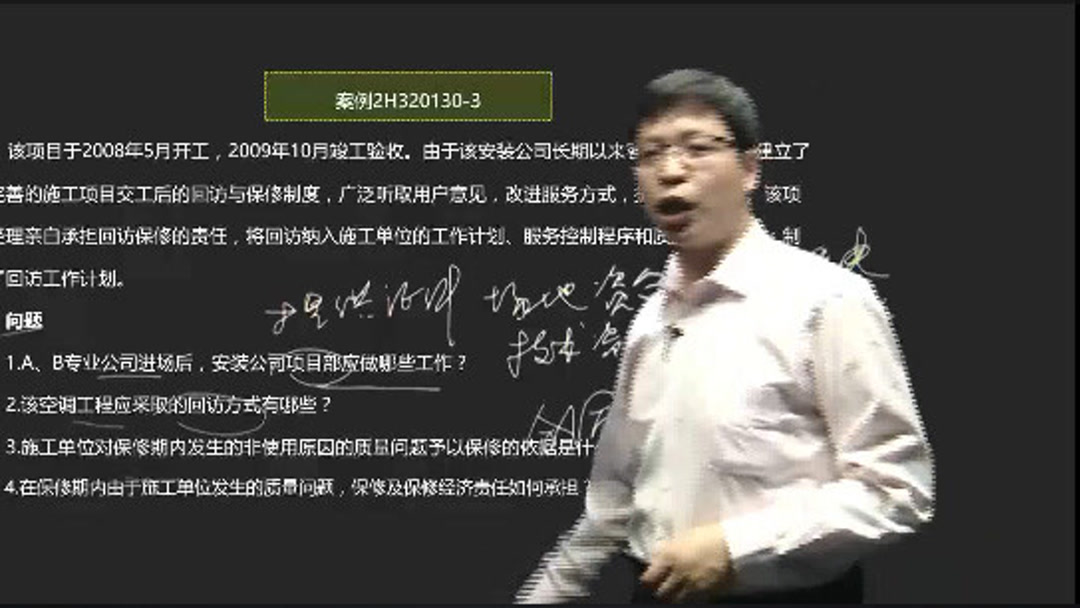 案例2H320130-3
该项目于2008年5月开工，2009年10月竣工验收。由于该安装公司长期以来 建立了
完善的施工项目交工后的回访与保修制度，广泛听取用户意见，改进服务方式， 该项
经理亲自承担回访保修的责任，将回访纳入施工单位的工作计划、服务控制程序和质 制
了回访工作计划。
提供 场地 资
问题
技术 资
1.A、B专业公司进场后，安装公司项目部应做哪些工作？
2.该空调工程应采取的回访方式有哪些？
3.施工单位对保修期内发生的非使用原因的质量问题予以保修的依据是什
4.在保修期内由于施工单位发生的质量问题，保修及保修经济责任如何承担？